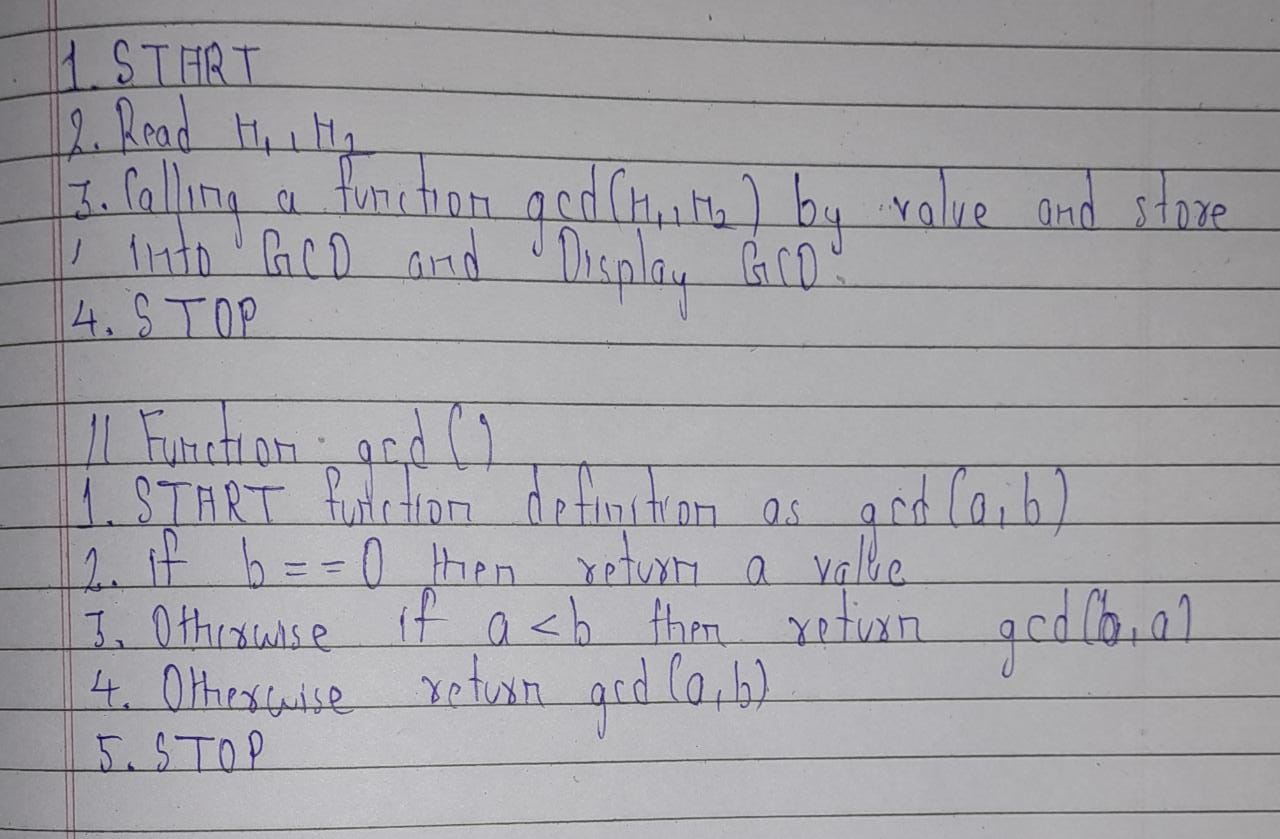 1. START
2. Read n1, n2
3. Calling a function gcd(n1, n2) by value and store
into GCD and Display GCD.
4. STOP
// Function gcd()
1. START function definition as gcd(a,b)
2. if b==0 then return a value
3. Otherwise if a<b then return gcd(b,a)
4. Otherwise return gcd(a,b)
5. STOP